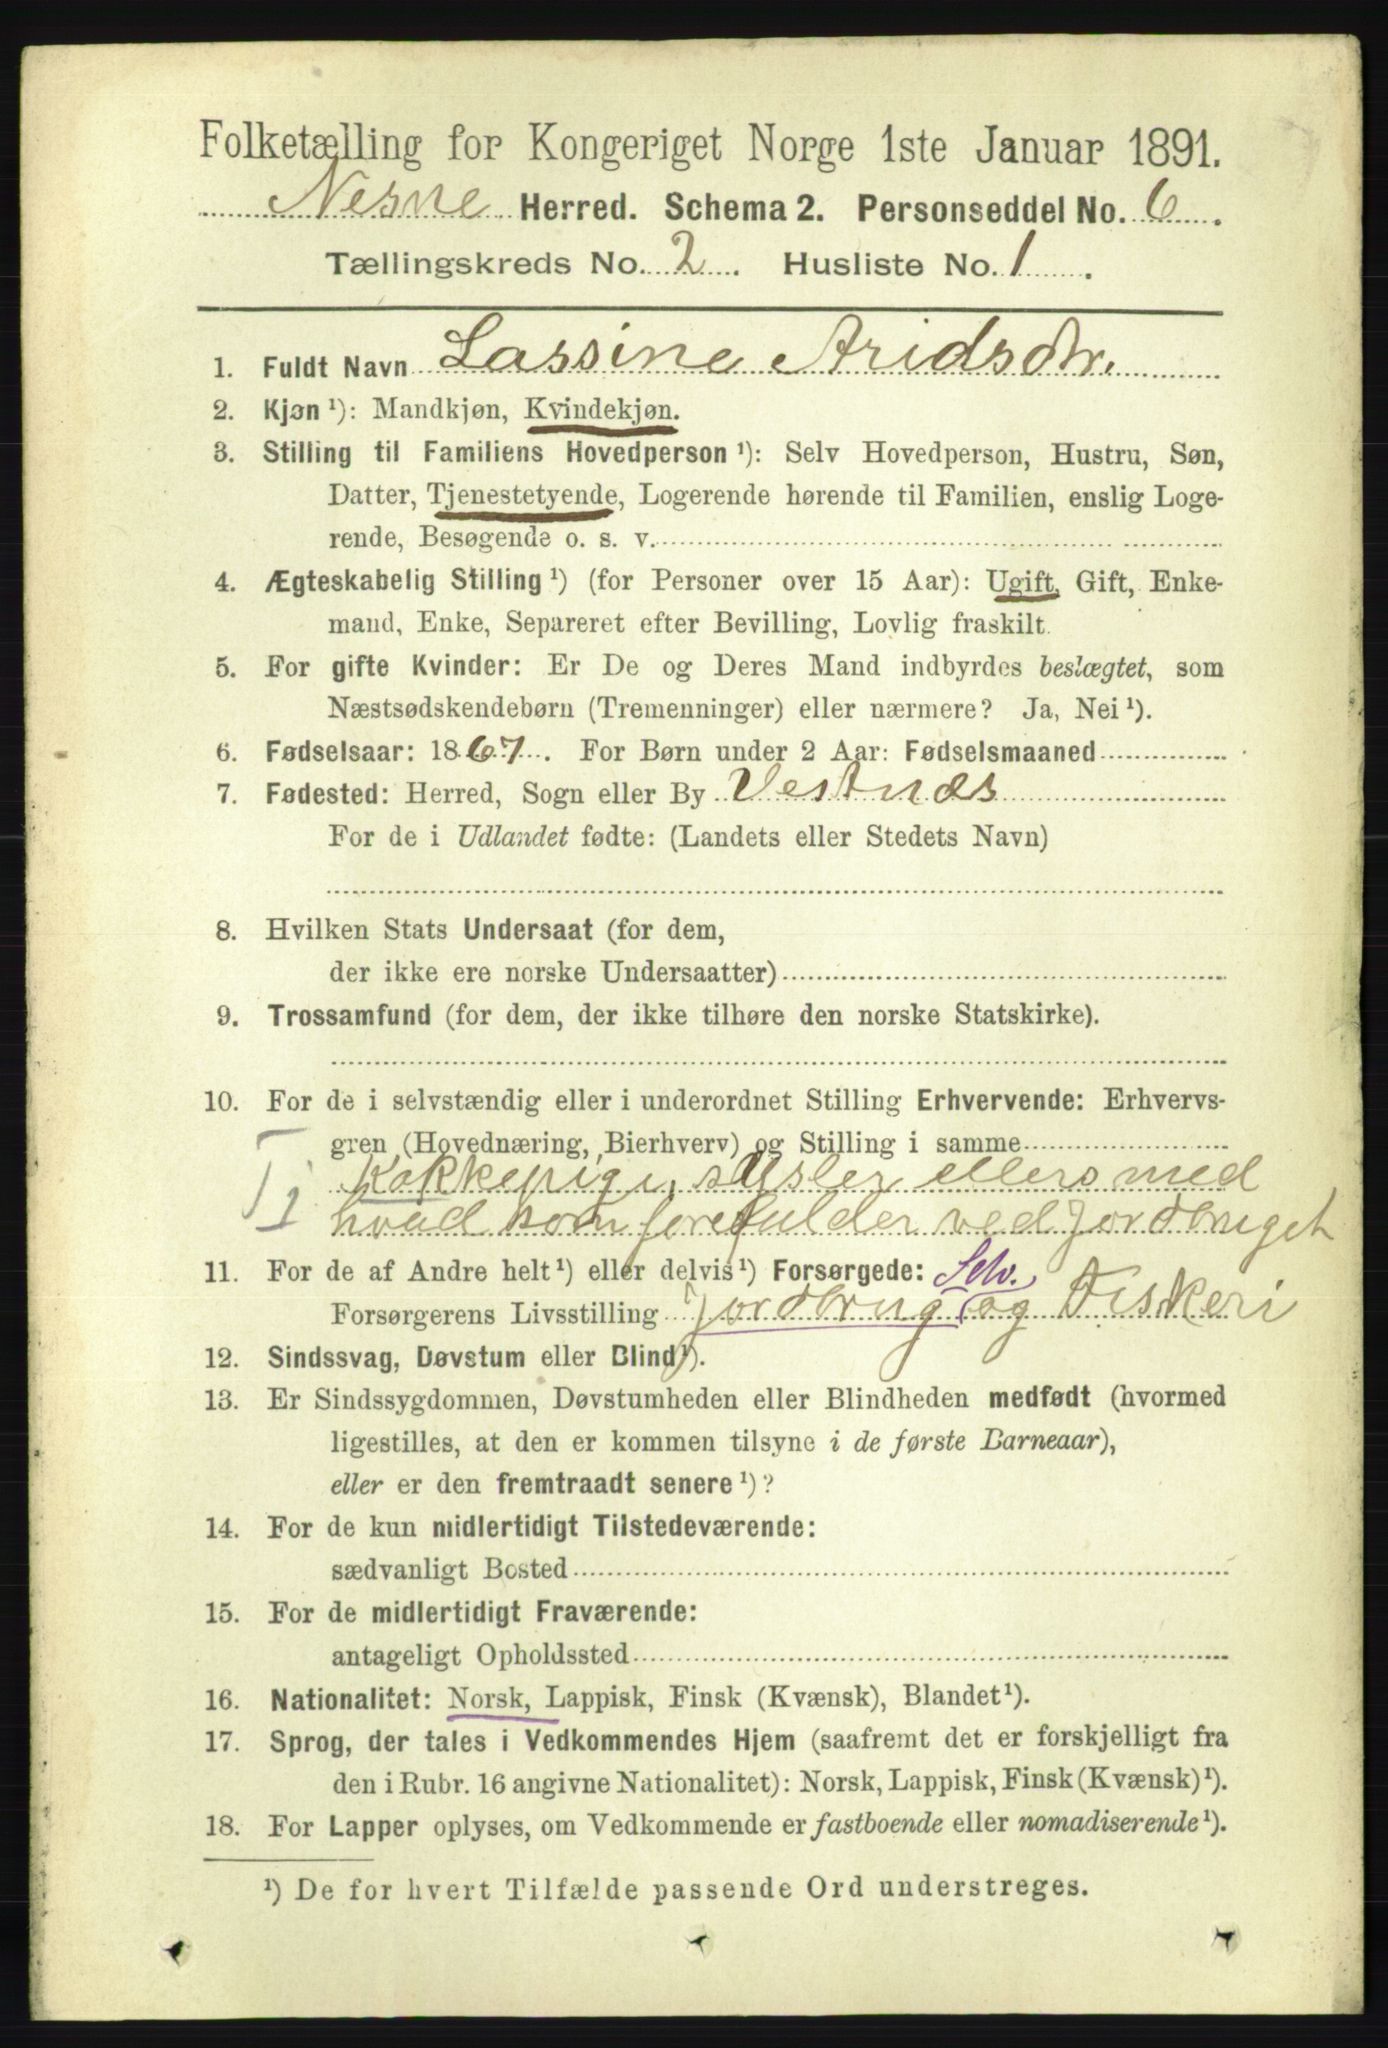 Folketælling for Kongeriget Norge 1ste Januar 1891.
Nesne Herred. Schema 2. Personseddel No. 6.
Tællingskreds No. 2. Husliste No. 1.
1. Fuldt Navn Lassine Aridsdtr.
2. Kjøn ¹): Mandkjøn, Kvindekjøn.
3. Stilling til Familiens Hovedperson ¹): Selv Hovedperson, Hustru, Søn,
Datter, Tjenestetyende, Logerende hørende til Familien, enslig Loge-
rende, Besøgende o. s. v.
4. Ægteskabelig Stilling ¹) (for Personer over 15 Aar): Ugift, Gift, Enke-
mand, Enke, Separeret efter Bevilling, Lovlig fraskilt.
5. For gifte Kvinder: Er De og Deres Mand indbyrdes beslægtet, som
Næstsødskendebørn (Tremenninger) eller nærmere? Ja, Nei ¹).
6. Fødselsaar: 1867. For Børn under 2 Aar: Fødselsmaaned
7. Fødested: Herred, Sogn eller By Vestnæs
For de i Udlandet fødte: (Landets eller Stedets Navn)
8. Hvilken Stats Undersaat (for dem,
der ikke ere norske Undersaatter)
9. Trossamfund (for dem, der ikke tilhøre den norske Statskirke).
10. For de i selvstændig eller i underordnet Stilling Erhvervende: Erhvervs-
gren (Hovednæring, Bierhverv) og Stilling i samme
Tj Kokkepige, sysler ellers med
hvad som forefalder ved Jordbruget
11. For de af Andre helt ¹) eller delvis ¹) Forsørgede: Selv.
Forsørgerens Livsstilling Jordbrug og Fiskeri
12. Sindssvag, Døvstum eller Blind ¹).
13. Er Sindssygdommen, Døvstumheden eller Blindheden medfødt (hvormed
ligestilles, at den er kommen tilsyne i de første Barneaar),
eller er den fremtraadt senere ¹)?
14. For de kun midlertidigt Tilstedeværende:
sædvanligt Bosted
15. For de midlertidigt Fraværende:
antageligt Opholdssted
16. Nationalitet: Norsk, Lappisk, Finsk (Kvænsk), Blandet ¹).
17. Sprog, der tales i Vedkommendes Hjem (saafremt det er forskjelligt fra
den i Rubr. 16 angivne Nationalitet): Norsk, Lappisk, Finsk (Kvænsk) ¹).
18. For Lapper oplyses, om Vedkommende er fastboende eller nomadiserende ¹).
¹) De for hvert Tilfælde passende Ord understreges.